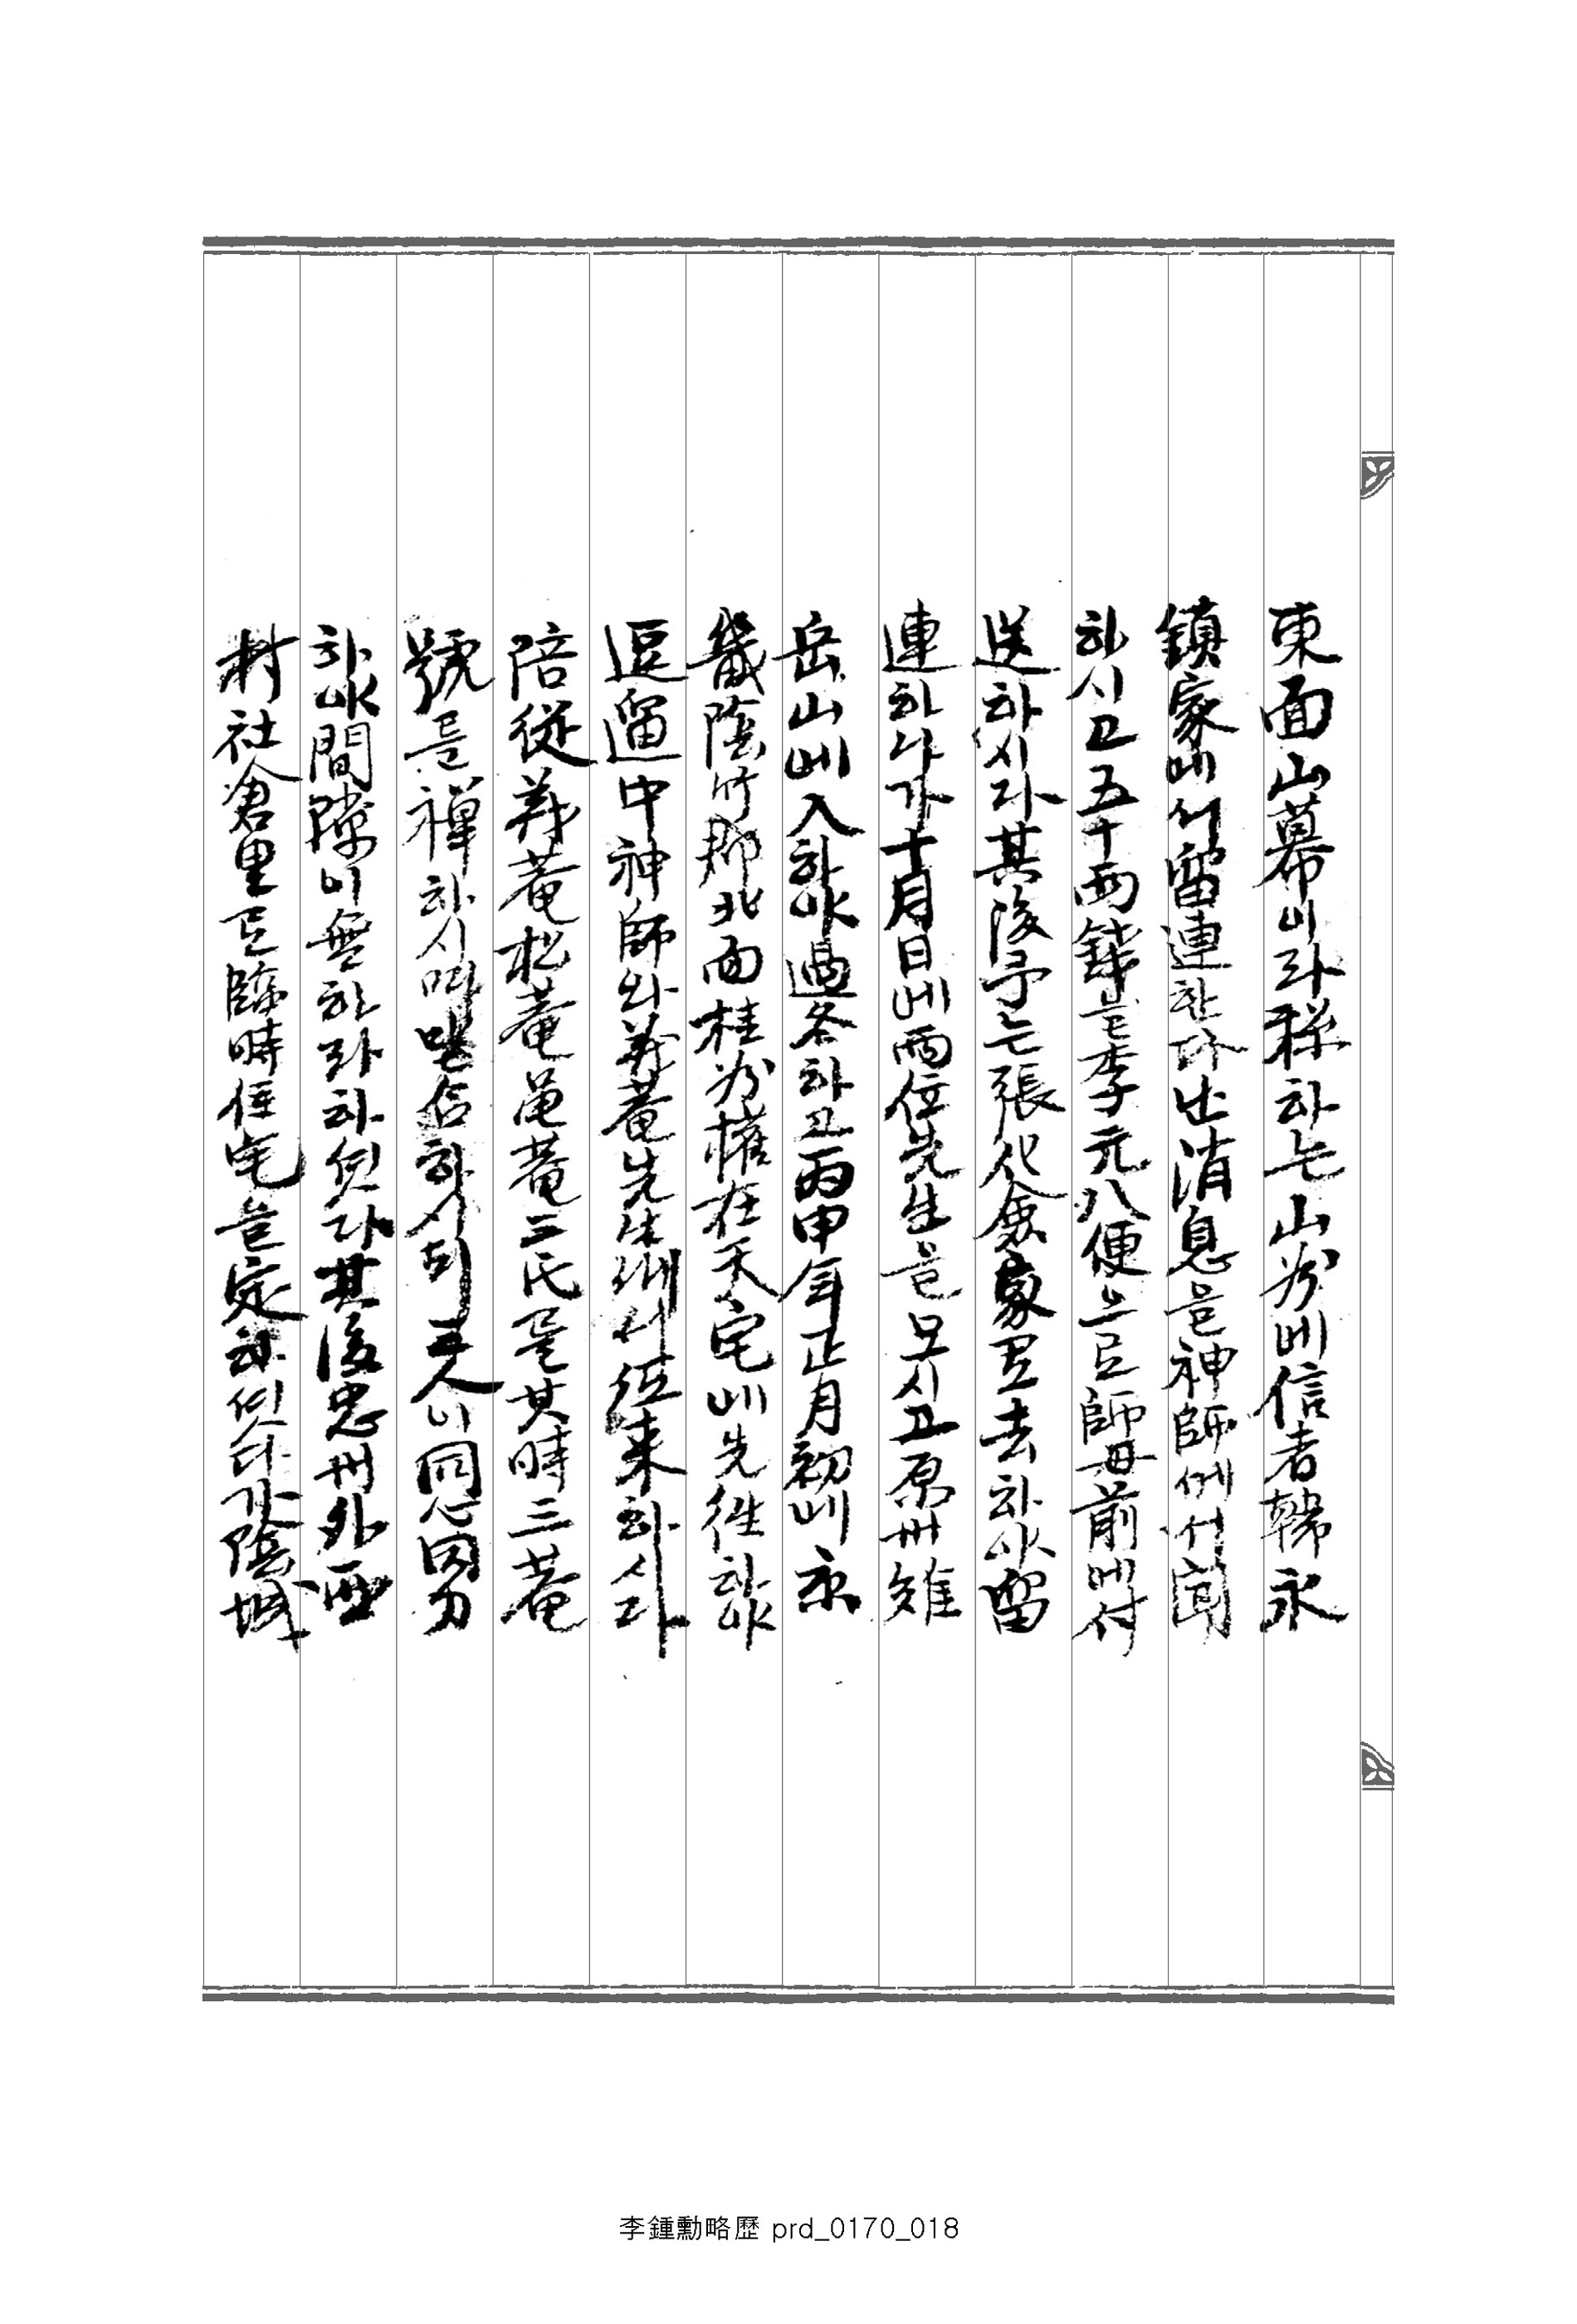 東面山幕이라稱하는山村에信者韓永
鎭家에서留連한다난消息을神師에서聞
하시고五十兩錢을李元八便으로師母前에付
送하시다其後予는張公舍家로去하야留
連하다가十月日에兩位先生을모시고原州雉
岳山에入하야過冬하고丙申年正月初에京
畿陰竹郡北面桂村權在天宅에先徃하야
逗遛中神師와義菴先生게서徃來하시다
陪從義菴松菴龜菴三氏를其時三菴
號를禪하시며 하시되三人이同心同力
하야間隙이無하라하엿다其後忠州外西
村社倉里로臨時住宅을定하엿다가陰城
李鍾勳略歷 prd_0170_018